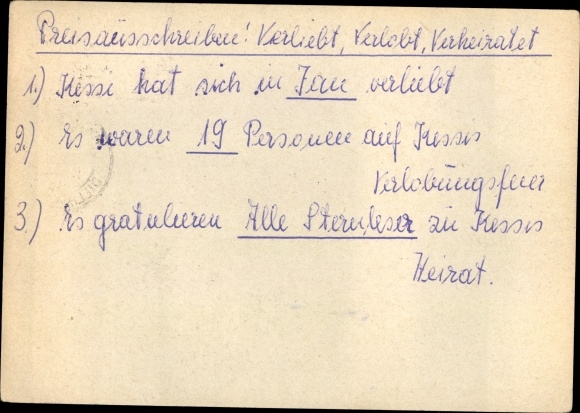 Preisausschreiben! Verliebt, Verlobt, Verheiratet
1.) Kessi hat sich in Jan verliebt
2.) Es waren 19 Personen auf Kessis
Verlobungsfeier
3.) Es gratulieren Alle Sternleser zu Kessis
Heirat.